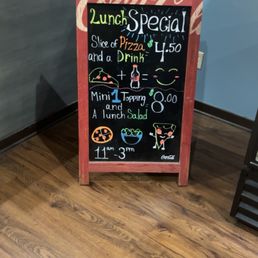 Lunch Special
Slice of Pizza $4.50
and a Drink
+ =
Mini 1 Topping $8.00
and
A lunch Salad
11am-3pm
Coca-Cola